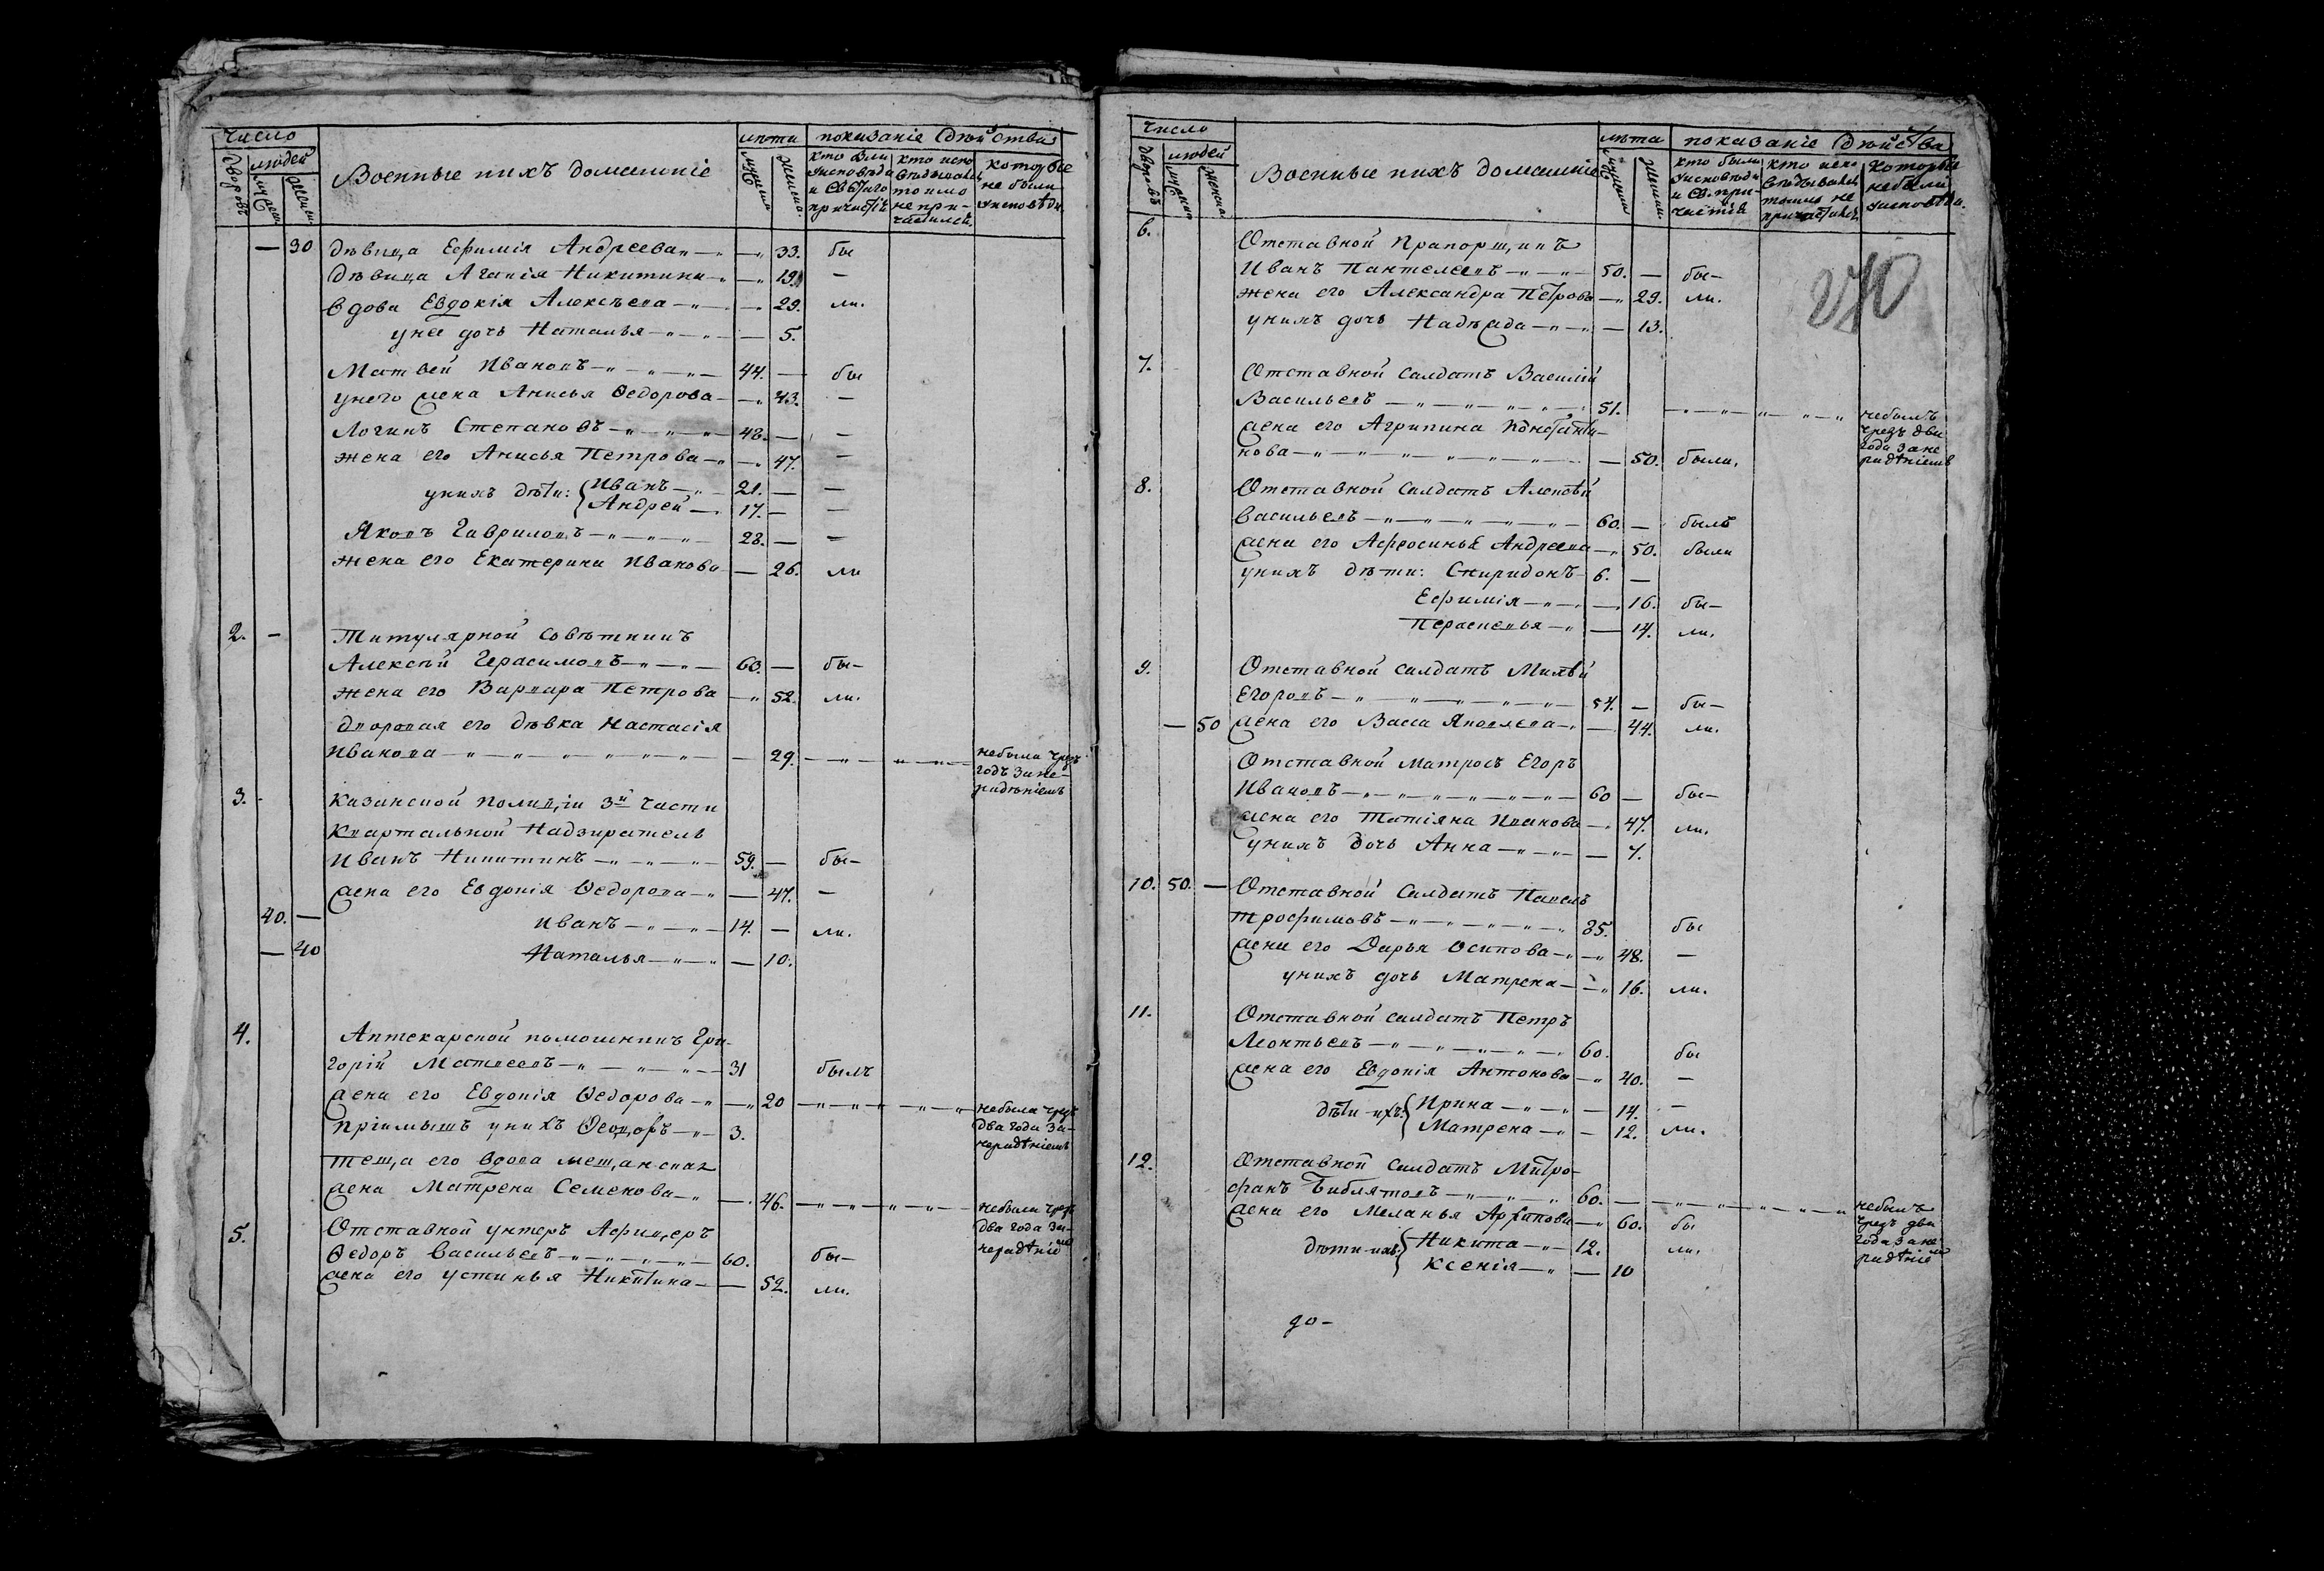 число
лѣта показаніе дѣйства
дворовъ
людей
мужеск.
женск.
Военные и ихъ домашніе
мужеска
женска
кто были
у исповѣди
и Св Таго
причастія
кто испо
вѣдывался
токмо
не при-
частился
которые
не были
у исповѣди
— 30 дѣвица Ефимія Андреева — — 33. бы
дѣвица Агапія Никитина — — 19. —
вдова Евдокія Алексѣева — — 29. ли.
у нее дочь Наталья — — 5.
Матвей Ивановъ — 44. — бы
у него жена Анисья Ѳедорова — — 43. —
Логинъ Степановъ — 48. — —
жена его Анисья Петрова — — 47. —
у нихъ дѣти: Иванъ — 21. — —
Андрей — 17. — —
Яковъ Гавриловъ — 28. — —
жена его Екатерина Иванова — 26. ли
2. — Титулярной совѣтникъ
Алексѣй Герасимовъ — 60. — бы-
жена его Варвара Петрова — 52. ли.
дворовая его дѣвка Настасія
Иванова — — 29. — не была чрезъ
годъ за не-
радѣніемъ
3. Казанской полиціи 3й части
Квартальной Надзиратель
Иванъ Никитинъ — 59. — бы-
жена его Евдокія Ѳедорова — — 47. —
40. — Иванъ — 14. — ли.
— 40 Наталья — — 10.
4. Аптекарской помошникъ Гри-
горій Матвеевъ — 31 былъ
жена его Евдокія Ѳедорова — — 20 — не была чрезъ
два года за-
нерадѣніемъ
пріимышъ у нихъ Ѳедоръ — 3.
теща его вдова мещанская
жена Матрена Семенова — — 46. — не была чрезъ
два года за-
нерадѣніемъ
5. Отставной унтеръ Афицеръ
Ѳедоръ Васильевъ — 60. бы-
жена его Устинья Никитина — — 52. ли.
число
лѣта показаніе дѣйства
дворовъ
людей
мужеска
женска
Военные и ихъ домашніе
мужеска
женска
кто были
у исповѣди
и Св. при-
частія
кто испо
вѣдывался
токмо не
причастился
которые
не были
у исповѣди.
6. Отставной Прапорщикъ
Иванъ Пантелеевъ — 50. — бы-
жена его Александра Петрова — 29. ли.
у нихъ дочь Надежда — — 13.
7. Отставной салдатъ Василій
Васильевъ — 51. — не былъ
чрезъ два
года за не
радѣніемъ
жена его Агрипина Константи-
нова — — 50. была.
8. Отставной салдатъ Алексѣй
Васильевъ — 60. — былъ
жена его Афросинья Андреева — 50. была
у нихъ дѣти: Спиридонъ — 6. —
Ефимія — — 16. бы-
Парасковья — — 14. ли.
9. Отставной салдатъ Михѣй
Егоровъ — 54. — бы-
— 50 жена его Васса Яковлева — — 44. ли.
Отставной матросъ Егоръ
Ивановъ — 60 — бы-
жена его Татіяна Иванова — 47. ли.
у нихъ дочь Анна — — 7.
10. 50. — Отставной салдатъ Павелъ
Трофимовъ — 85. бы
жена его Дарья Осипова — — 48. —
у нихъ дочь Матрена — — 16. ли.
11. Отставной салдатъ Петръ
Леонтьевъ — 60. бы
жена его Евдокія Антонова — 40. —
дѣти ихъ: Ирина — — 14. —
Матрена — — 12. ли.
12. Отставной салдатъ Митро-
фанъ — 60. — не былъ
чрезъ два
года за не
радѣніемъ
жена его Меланья Архипова — 60. бы
дѣти ихъ: Никита — 12. ли.
Ксенія — — 10
до-